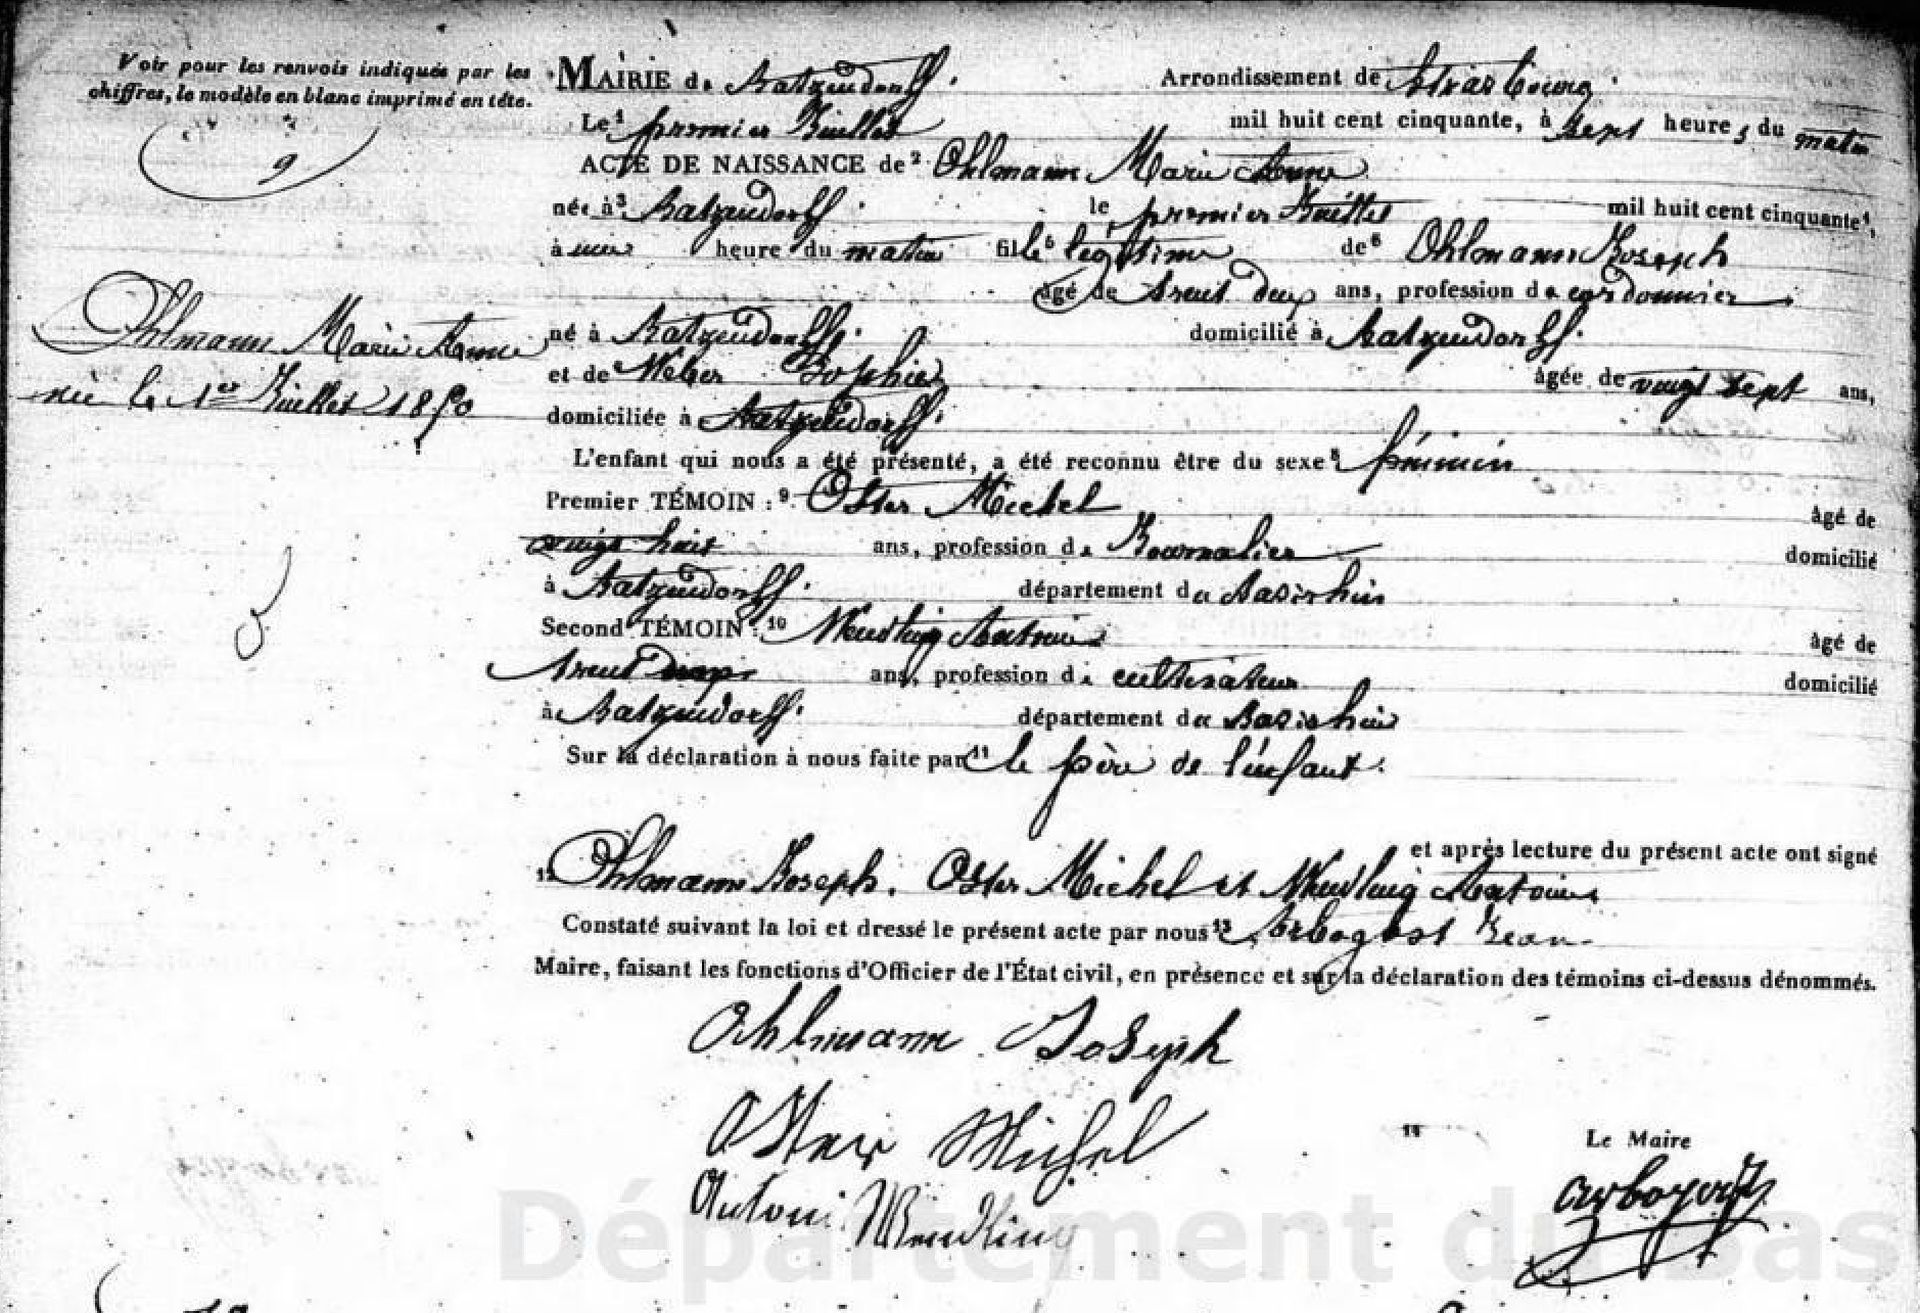 Voir pour les renvois indiqués par les
chiffres, le modèle en blanc imprimé en tête.
MAIRIE de Batzendorff. Arrondissement de Strasbourg.
Le¹ premier Juillet mil huit cent cinquante, à sept heures du matin
ACTE DE NAISSANCE de² Ohlmann Marie Anne
née à³ Batzendorff. le premier Juillet mil huit cent cinquante⁴,
à une heure du matin fille⁵ légitime de⁶ Ohlmann Joseph
âgé de trent deux ans, profession de cordonnier
né à Batzendorff. domicilié à Batzendorff.
et de Weber Sophie âgée de vingt sept ans,
domiciliée à Batzendorff.
L'enfant qui nous a été présenté, a été reconnu être du sexe⁸ féminin
Premier TÉMOIN :⁹ Oster Michel âgé de
vingt huit ans, profession de Journalier domicilié
à Batzendorff. département du Basrhin
Second TÉMOIN :¹⁰ Wendling Antoine âgé de
trent deux ans, profession de cultivateur domicilié
à Batzendorff. département du Basrhin
Sur la déclaration à nous faite par¹¹ le père de l'enfant.
et après lecture du présent acte ont signé
¹² Ohlmann Joseph, Oster Michel et Wendling Antoine
Constaté suivant la loi et dressé le présent acte par nous¹³ Arbogast Jean
Maire, faisant les fonctions d'Officier de l'État civil, en présence et sur la déclaration des témoins ci-dessus dénommés.
9
Ohlmann Marie Anne
née le 1er Juillet 1850
Ohlmann Joseph
Oster Michel
Antoni Wendling
¹⁴ Le Maire
Arbogast
Département du Bas